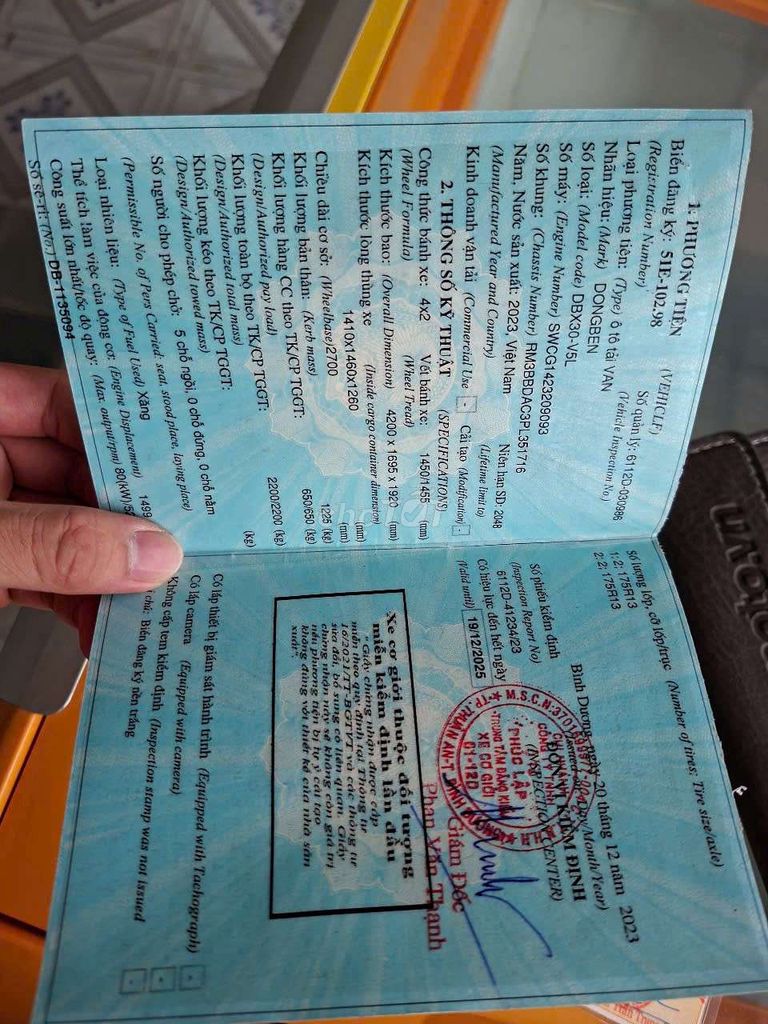 1. PHƯƠNG TIỆN (VEHICLE)
Biển đăng ký: 51E-102.98 Số quản lý: 6112D-030986
(Registration Number) (Vehicle Inspection No)
Loại phương tiện: (Type) ô tô tải VAN
Nhãn hiệu: (Mark) DONGBEN
Số loại: (Model code) DBX30-V5L
Số máy: (Engine Number) SWCG1423209093
Số khung: (Chassis Number) RM3BBDAC3PL351716
Năm, Nước sản xuất: 2023, Việt Nam Niên hạn SD: 2048
(Manufactured Year and Country) (Lifetime limit to)
Kinh doanh vận tải (Commercial Use) Cải tạo (Modification)
2. THÔNG SỐ KỸ THUẬT (SPECIFICATIONS)
Công thức bánh xe: 4x2 Vết bánh xe: 1450/1455 (mm)
(Wheel Formula) (Wheel Tread)
Kích thước bao: (Overall Dimension) 4200 x 1695 x 1920 (mm)
Kích thước lòng thùng xe (Inside cargo container dimension)
1410x1460x1260 (mm)
Chiều dài cơ sở: (Wheelbase) 2700 (mm)
Khối lượng bản thân: (Kerb mass) 1225 (kg)
Khối lượng hàng CC theo TK/CP TGGT: 650/650 (kg)
(Design/Authorized pay load)
Khối lượng toàn bộ theo TK/CP TGGT: 2200/2200 (kg)
(Design/Authorized total mass)
Khối lượng kéo theo TK/CP TGGT: (kg)
(Design/Authorized towed mass)
Số người cho phép chở: 5 chỗ ngồi, 0 chỗ đứng, 0 chỗ nằm
(Permissible No. of Pers Carried: seat, stood place, laying place)
Loại nhiên liệu: (Type of Fuel Used) Xăng
Thể tích làm việc của động cơ: (Engine Displacement) 1499
Công suất lớn nhất/tốc độ quay: (Max. output/rpm) 80(kW)/5
Số sê-ri: (No.) DB-1135094
Số lượng lốp, cỡ lốp/trục (Number of tires; Tire size/axle)
1: 2; 175R13
2: 2; 175R13
Bình Dương, ngày 20 tháng 12 năm 2023
Day/Month/Year)
Số phiếu kiểm định ĐƠN VỊ KIỂM ĐỊNH
(Inspection Report No) (INSPECTION CENTER)
6112D-41234/23
Có hiệu lực đến hết ngày
(Valid until) 19/12/2025
M.S.C.N:3701
CHI NHÁNH
CÔNG TY
PHÚC LẬP
TRUNG TÂM ĐĂNG KIỂM
XE CƠ GIỚI
61-12D
TP. THUẬN AN - T. BÌNH DƯƠNG
Giám Đốc
Phan Văn Thạnh
Xe cơ giới thuộc đối tượng
miễn kiểm định lần đầu
"Giấy chứng nhận được cấp
miễn theo quy định tại Thông tư
16/2021/TT-BGTVT và các thông tư
sửa đổi, bổ sung có liên quan. Giấy
chứng nhận này sẽ không còn giá trị
nếu phương tiện bị tự ý cải tạo
không đúng với thiết kế của nhà sản
xuất".
Có lắp thiết bị giám sát hành trình (Equipped with Tachograph)
Có lắp camera (Equipped with camera)
Không cấp tem kiểm định (Inspection stamp was not issued
chú: Biển đăng ký nền trắng